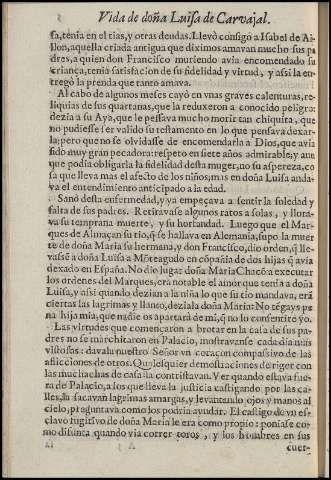 Vida de doña Luisa de Carvajal.
sa, tenia en el tias, y otras deudas. Llevò consigo a Isabel de Ai-
llon, aquella criada antigua que diximos amavan mucho sus pa
dres, a quien don Francisco muriendo avia encomendado su
criança, tenia satisfacion de su fidelidad y virtud, y assi la en-
tregò la prenda que tanto amava.
Al cabo de algunos meses cayò en unas graves calenturas, re-
liquias de sus quartanas, que la reduxeron a conocido peligro:
dezia a su Aya, que le pessava mucho morir tan chiquita, que
no pudiesse ser valido su testamento en lo que pensava dexar-
la; pero que no se olvidasse de encomendarla a Dios, que avia
sido muy gran pecadora: respeto en siete años admirable; y aun
que podia obligarla la fidelidad desta muger, no su aspereza, co
sa que lleva mas el afecto de los niños, mas en doña Luisa anda-
va el entendimiento anticipado a la edad.
Sanò desta enfermedad, y ya empeçava a sentir la soledad y
falta de sus padres. Retiravase algunos ratos a solas, y llora-
va su temprana muerte, y su horfandad. Luego que el Mar-
ques de Almaçan su tio, q̃ se hallava en Alemania, supo la muer
te de doña Maria su hermana, y don Francisco, dio orden, q̃ lle-
vassẽ a doña Luisa a Mõteagudo en cõpañia de dos hijas q̃ avia
dexado en España. No dio lugar doña Maria Chacõ a executar
los ordenes del Marques, era notable el amor que tenia a doña
Luisa, y assi quando dezian a la niña lo que su tio mandava, erã
ciertas las lagrimas y llanto, deziala doña Maria: No tẽgays pe
na hija mia, que nadie os apartarà de mi, q̃ no lo consentirè yo.
Las virtudes que començaron a brotar en la casa de sus pa-
dres no se marchitaron en Palacio, mostravanse cada dia mas
vistosas: davala nuestro Señor un coraçon compassivo de las
aflicciones de otros. Qualesquier demostraciones de rigor con
las muchachas de casa la contristavan. Y er quando estava fue-
ra de Palacio, a los que lleva la justicia castigando por las ca-
lles, la sacavan lagrimas amargas, y levantando ojos y manos al
cielo, preguntava como los podria ayudar. El castigo de un es-
clavo fugitivo de doña Maria le era como propio: poniase co-
mo difunta quando via correr toros, y los hombres en sus
cuer-